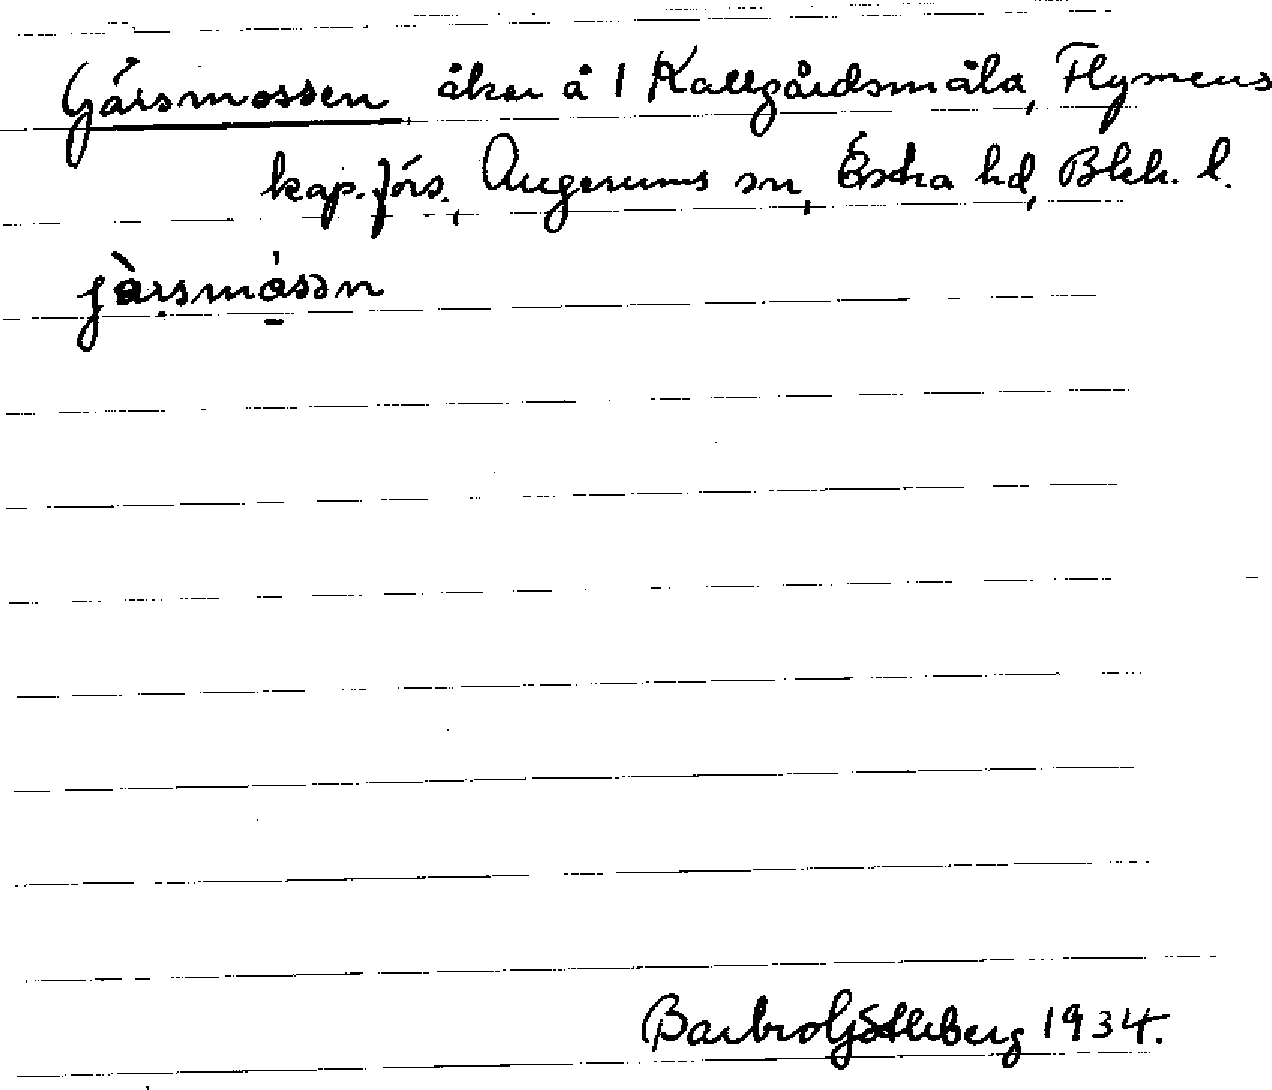 Gärsmossen, åker å 1 Kallgårdsmåla, Flymens
kap. förs., Augerums sn, Östra hd, Blek. l.
jàrsmósən
Barbro Götherberg 1934.